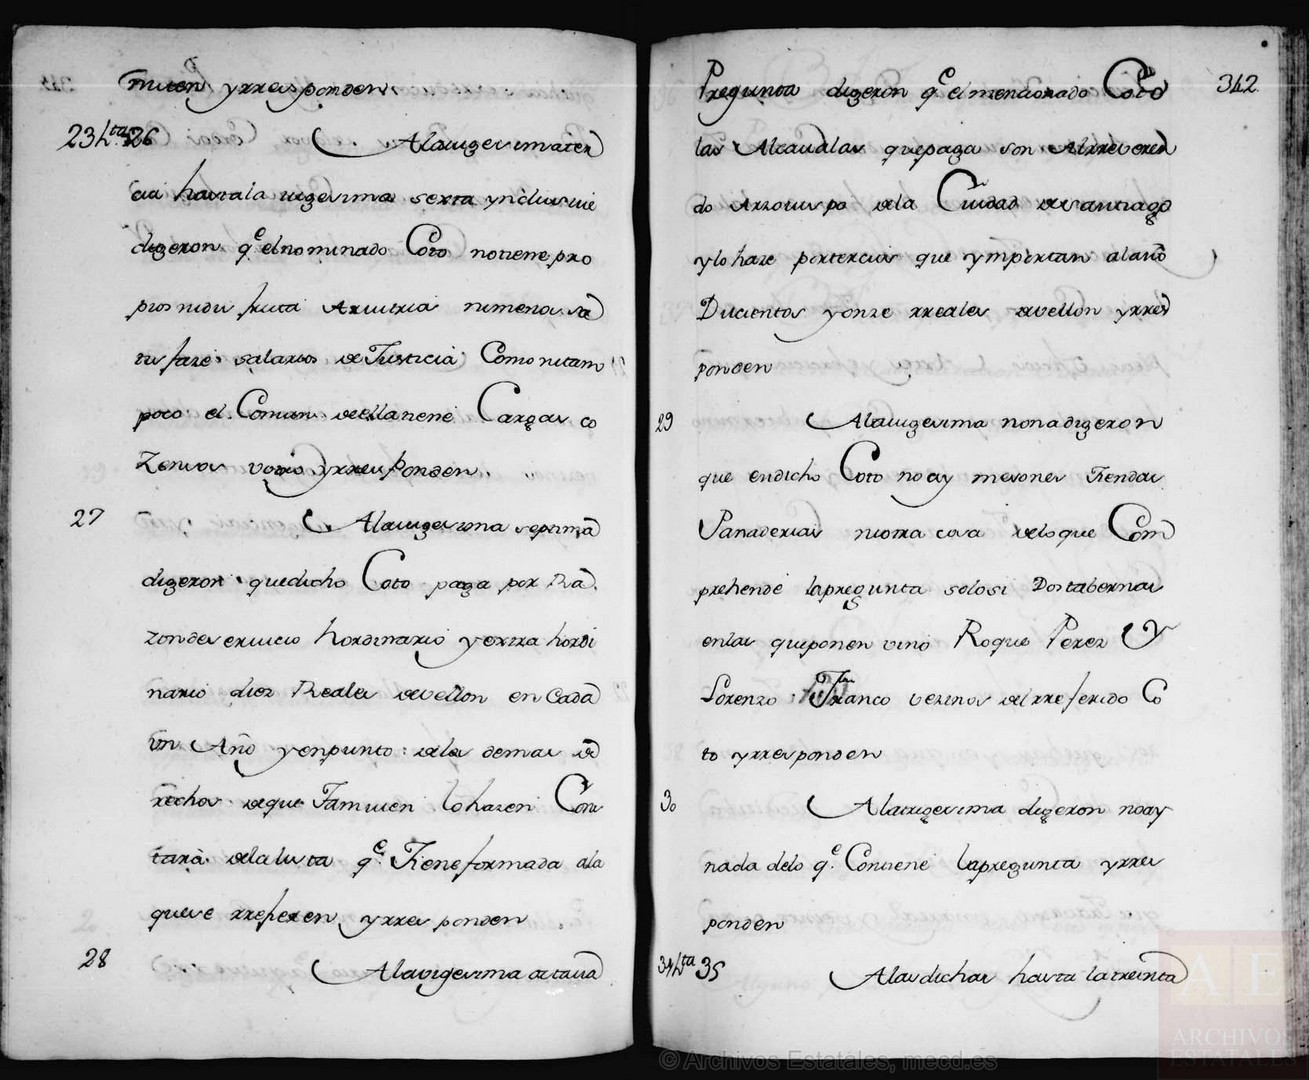 miten yrresponden
23 hta 26
Alauigesimater
cia hastala uigesima sexta ynclusiue
digeron qe. elnominado Coto notiene pro
pios nidis fruta Aruitria nimenos sa
tisfaze salarios deJusticia Como nitam
poco el Comun deellatiene Cargas co
Zensos yrresponden.
27
Alauigesima septima
digeron quedicho Coto paga por Ra
zondeseruicio hordinario yextra hordi
nario diez Reales devellon en Cada
un Año yenpunto delos demas de
rechos deque Tamuien lohazen Cons
tará delalista qe. Tiene formada ala
quese rrefieren yrresponden
28
Alavigesima octaua
Pregunta digeron qe. elmencionado Coto
312
las Alcaualas quepaga son Alrreveren
do Arzouispo dela Ciudad deSantiago
ylo haze portercios que ymportan alaño
Ducientos yonze rreales devellon yrres
ponden
29
Alauigesima nona digeron
que endicho Coto no ay mesones Tiendas
Panaderias niotra cosa deloque Com
prehende lapregunta solosi Dos tabernas
enlas queponen vino Roque Perez Y
Lorenzo Franco vezinos delrreferido Co
to yrresponden
30
Alatrigesima digeron noay
nada delo qe. Contiene lapregunta yrres
ponden
31 hta 35
Alasdichas hasta latreinta
AE
ARCHIVOS
ESTATALES
© Archivos Estatales, mecd.es